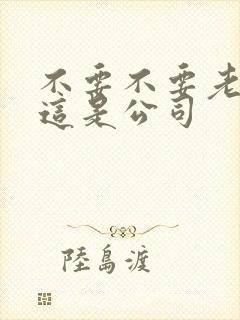 不要不要老
這是公司
陸島渡